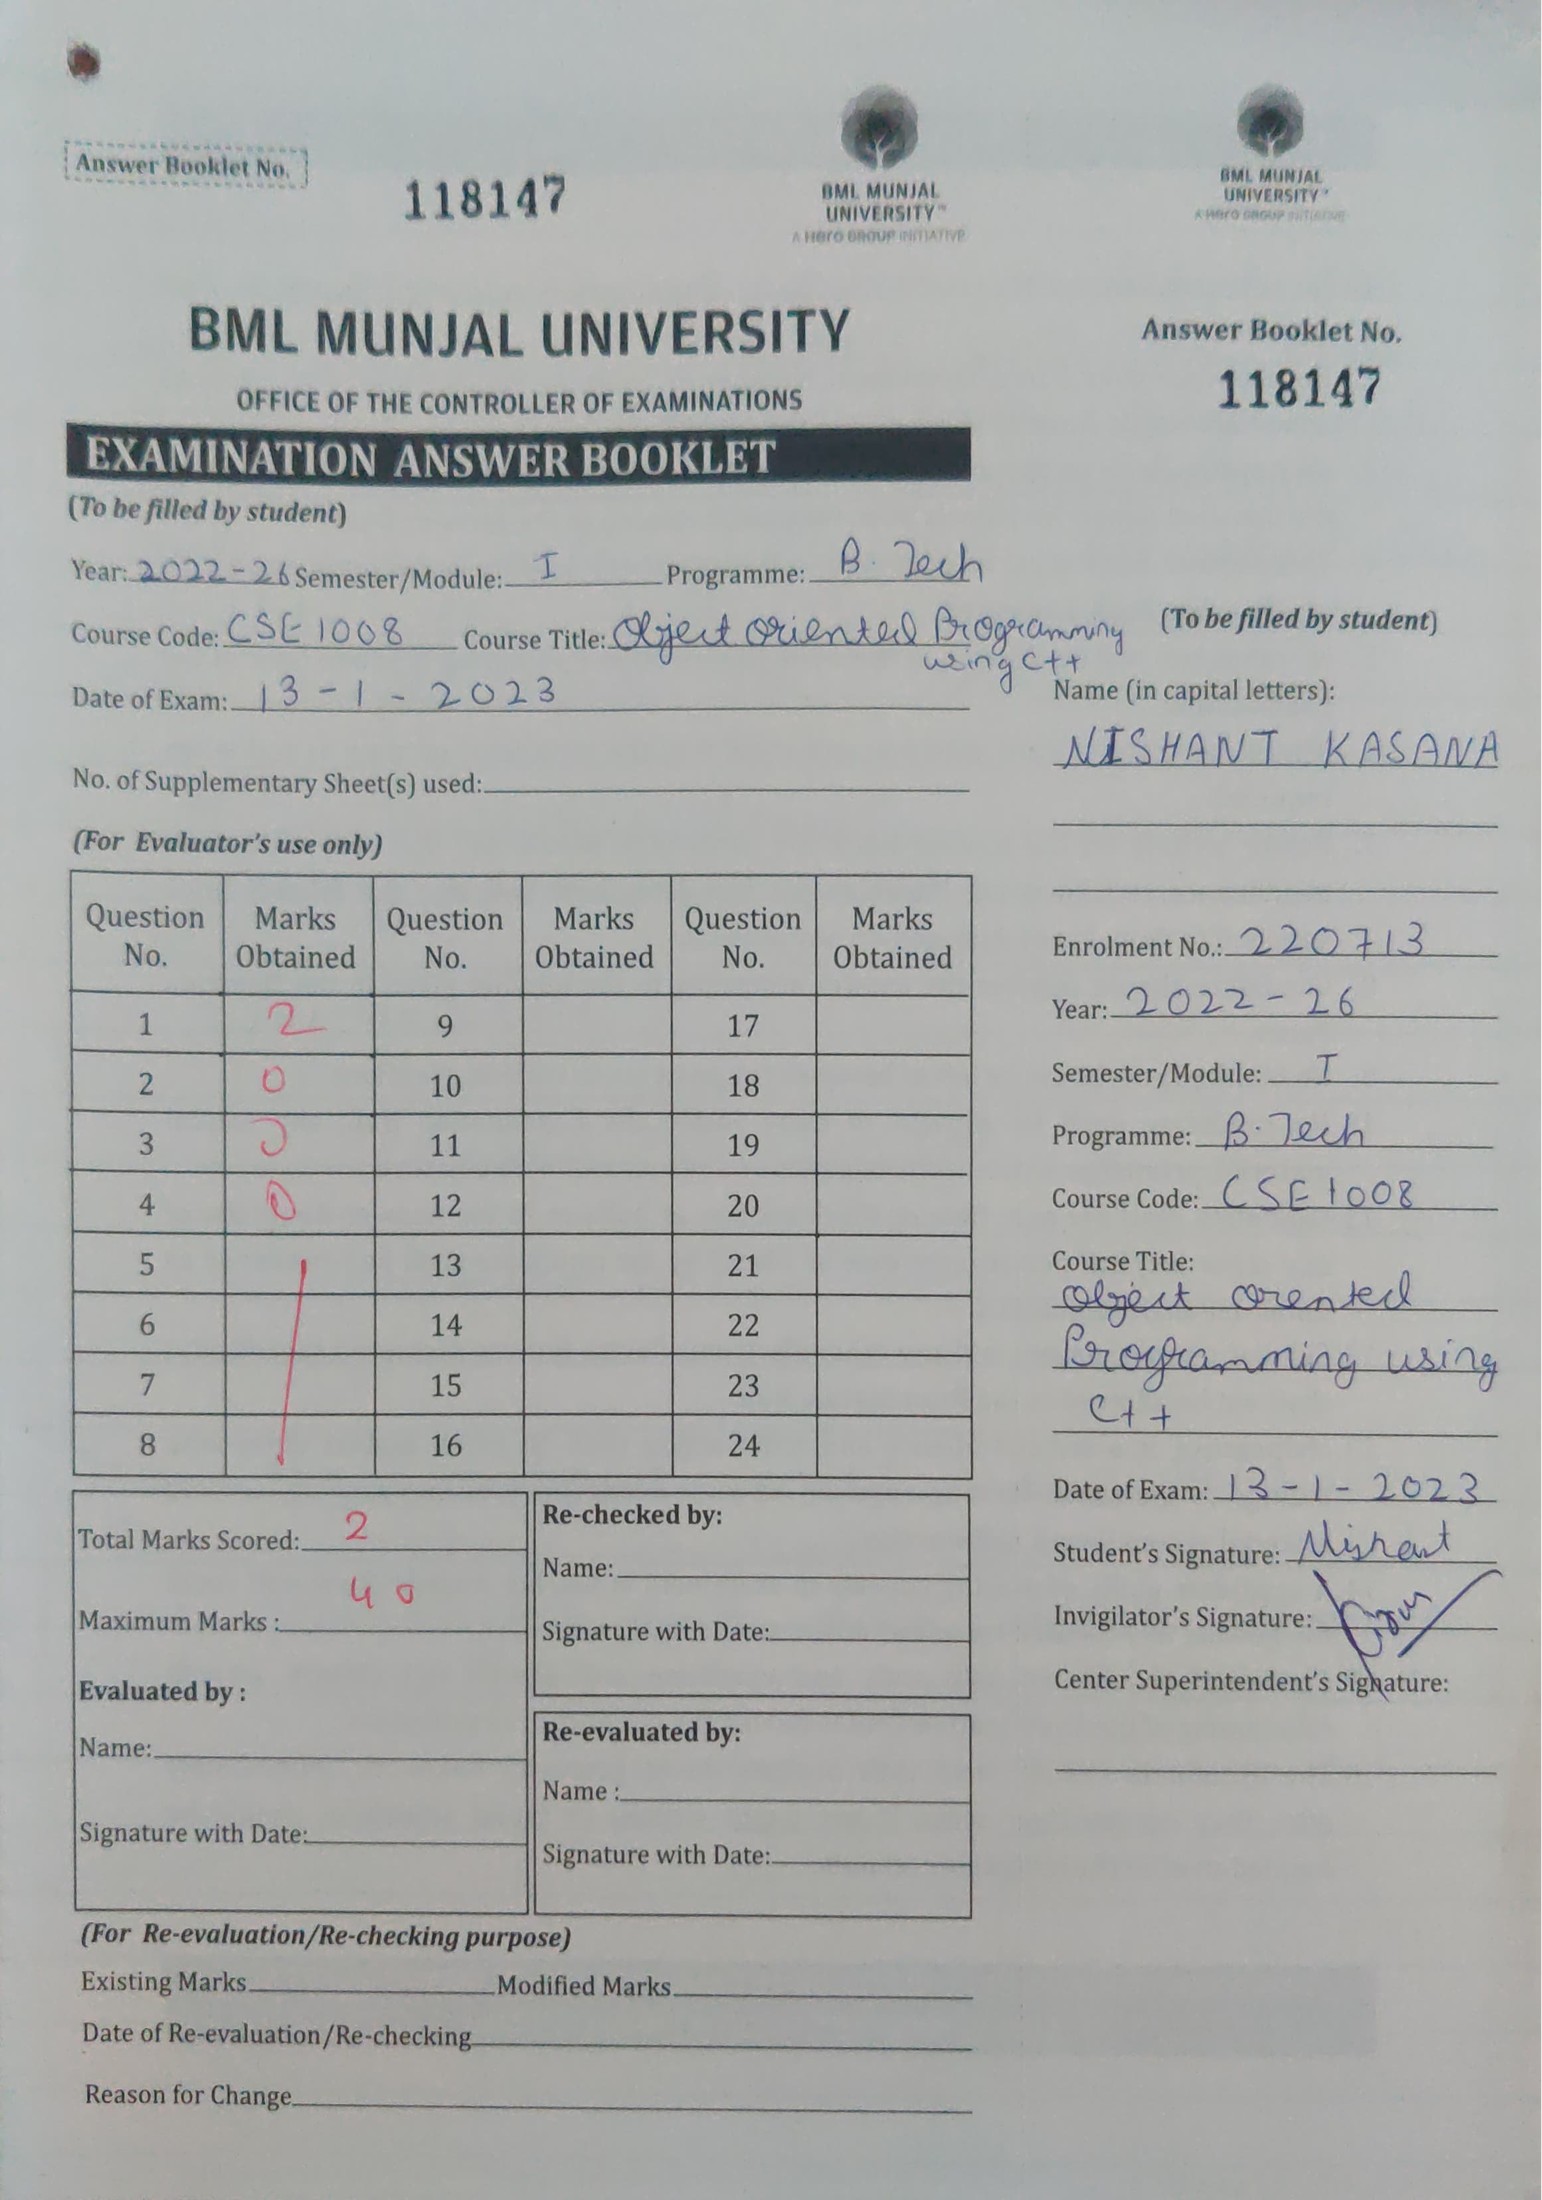 Answer Booklet No.
118147
BML MUNJAL
UNIVERSITY™
A Hero GROUP INITIATIVE
BML MUNJAL
UNIVERSITY
A Hero GROUP INITIATIVE
BML MUNJAL UNIVERSITY
OFFICE OF THE CONTROLLER OF EXAMINATIONS
EXAMINATION ANSWER BOOKLET
(To be filled by student)
Year: 2022-26 Semester/Module: I Programme: B. Tech
Course Code: CSE1008 Course Title: Object oriented Programming
using C++
Date of Exam: 13-1-2023
No. of Supplementary Sheet(s) used:
(For Evaluator's use only)
Question No. Marks Obtained Question No. Marks Obtained Question No. Marks Obtained
1 2 9 17
2 0 10 18
3 0 11 19
4 0 12 20
5 13 21
6 14 22
7 15 23
8 16 24
Total Marks Scored: 2
Maximum Marks : 40
Evaluated by :
Name:
Signature with Date:
Re-checked by:
Name:
Signature with Date:
Re-evaluated by:
Name :
Signature with Date:
(For Re-evaluation/Re-checking purpose)
Existing Marks Modified Marks
Date of Re-evaluation/Re-checking
Reason for Change
Answer Booklet No.
118147
(To be filled by student)
Name (in capital letters):
NISHANT KASANA
Enrolment No.: 220713
Year: 2022-26
Semester/Module: I
Programme: B.Tech
Course Code: CSE1008
Course Title:
Object orented
Programming using
C++
Date of Exam: 13-1-2023
Student's Signature: Nishant
Invigilator's Signature:
Center Superintendent's Signature: